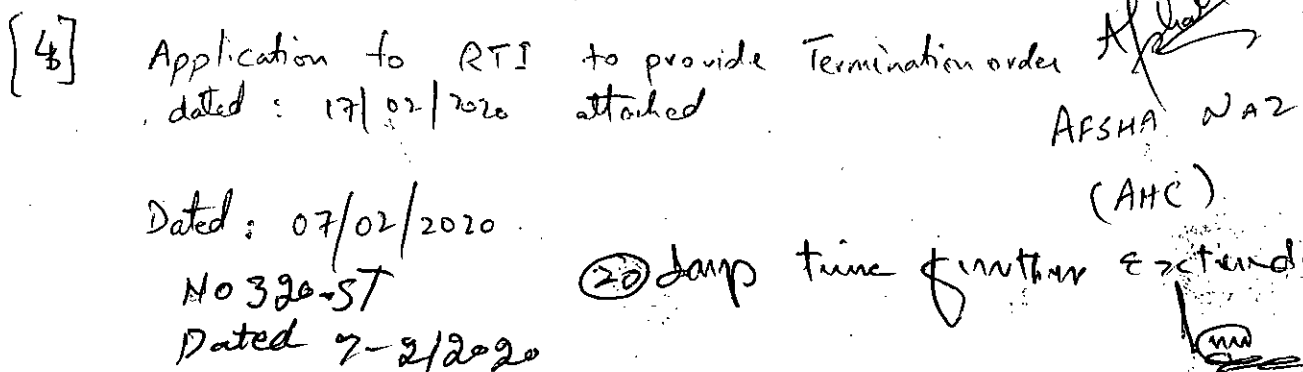 [4] Application to RTI to provide Termination order
dated : 17/02/2020 attached
AFSHA NAZ
(AHC)
Dated : 07/02/2020
No 320-ST
Dated 7-2/2020
20 days time further Extend